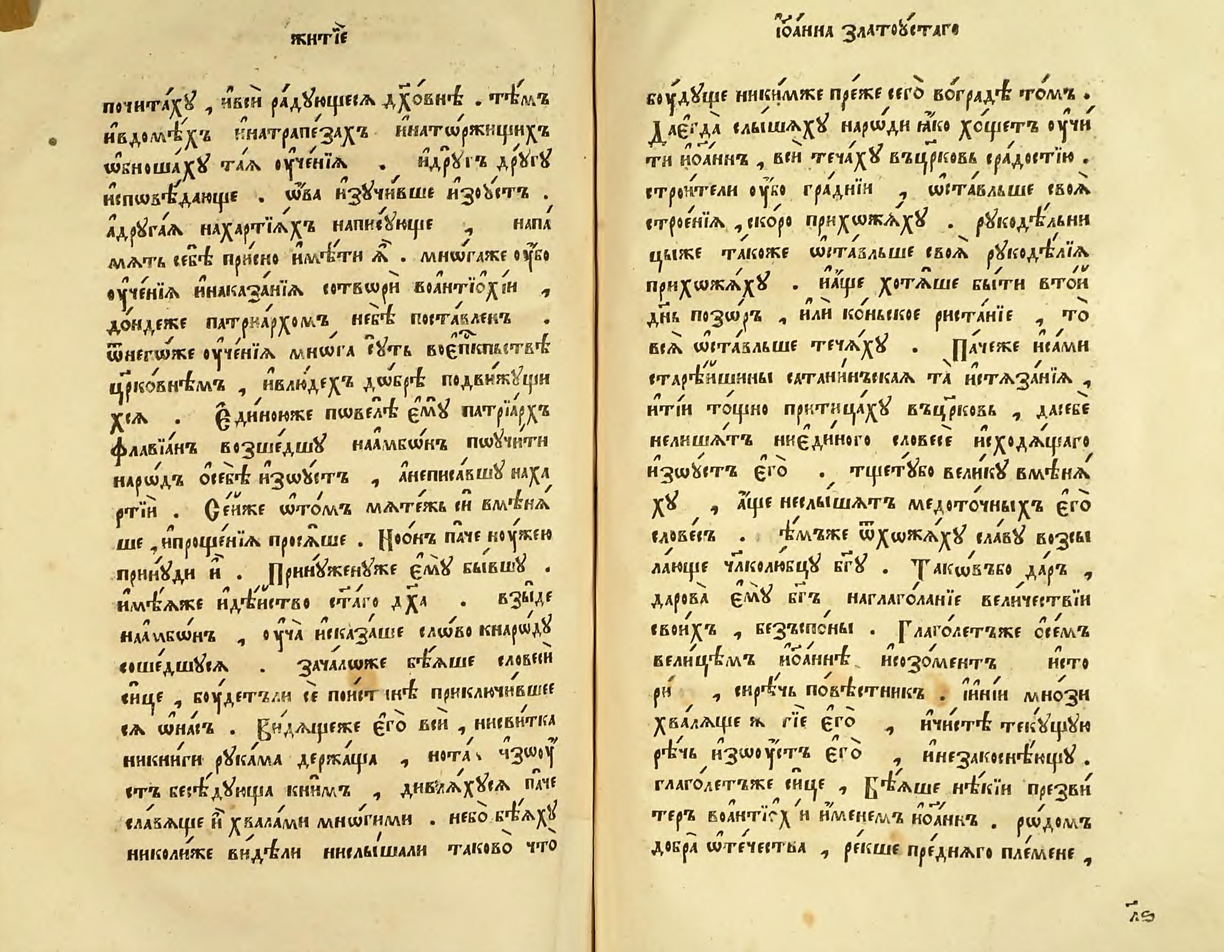 житїе
почитахꙋ , ивси радꙋющеся дх҃овнѣ . тѣмъ
ивдомѣхъ инатрапезахъ инатѡржищихъ
ѡбношахꙋ тая оученїя . идрꙋгъ дрꙋгꙋ
исповѣдающе . ѡва изꙋчивше изоустъ .
адрꙋгая нахартїяхъ написꙋюще , напа
мять себѣ присно имѣти ѧ . мнѡгаже оубо
оученїя инаказанїя сотвори воантїохїи ,
дондеже патрїархомъ небѣ поставленъ .
ѿнегѡже оученїя мнѡга сꙋть воєпⷭ҇кпьствѣ
цр҃ковнѣмъ , ивлюдехъ дѡбрѣ подвижꙋщи
хся . Единоюже пѡвелѣ ємꙋ патрїархъ
флавїанъ возшедшꙋ наамбѡнъ пѡучити
нарѡдъ ѻсебѣ изѡустъ , анеписавшꙋ наха
ртїи . Сейже ѡтомъ мятежь си вмѣня
ше , ипрощенїя просяше . Ноонъ паче ноужею
принꙋди и . Принꙋженꙋже ємꙋ бывшꙋ .
имѣяже идѣйство ст҃аго дх҃а . взыде
наамбѡнъ , оуча исказаше слѡво кнарѡдꙋ
сошедшꙋся . зачалѡже бѣяше словеси
сице , боудетъли се поистинѣ приключившее
ся ѡнасъ . Видящеже єго вси , нисвитка
никниги рꙋкама держаща , нота изѡу
стъ бесѣдꙋюща книмъ , дивляхꙋся паче
славяще и хвалами мнѡгими . небо бѣяхꙋ
николиже видѣли нислышали таково что
їѡанна златоꙋстаго
боудꙋще никимже преже сего воградѣ томъ .
Даєгда слышяхꙋ нарѡди ꙗко хощетъ оучи
ти иѡаннъ , вси течахꙋ въцр҃ковь срадостїю .
строители оубо граднїи , ѡставльше своя
строенїя , скоро прихѡжяхꙋ . рꙋкодѣльни
цыже такоже ѡставльше своя рꙋкодѣлїя
прихѡжяхꙋ . иаще хотяше быти втой
дн҃ь позѡръ , или коньское ристанїе , то
вся ѡставльше течяхꙋ . Пачеже исами
старѣйшины сатанинъская та истязанїя ,
ити тощно притицахꙋ въцр҃ковь , дасебе
нелишятъ ниєдиного словесе исходящаго
изѡустъ єго . тщетꙋбо великꙋ вмѣня
хꙋ , аще неслышятъ медоточныхъ єго
словесъ . тѣмъже ѿхѡжяхꙋ славꙋ возсы
лающе чл҃колюбцꙋ бг҃ꙋ . Такѡвъбо даръ ,
дарова ємꙋ бг҃ъ наглаголанїе величествїи
своихъ , безъспоны . Глаголетъже ѻсемъ
велицѣмъ иѡаннѣ исозоментъ исто
ри , сирѣчь повѣстникъ . їинїи мнози
хвалящe гїе єго , ичистѣ текꙋщꙋю
рѣчь изѡустъ єго , инезакоснѣющꙋ .
глаголетъже сице , Бѣяше нѣкїи презви
теръ воантїохїи именемъ иѡаннъ . рѡдомъ
добра ѡтечества , рекше предняго племене ,